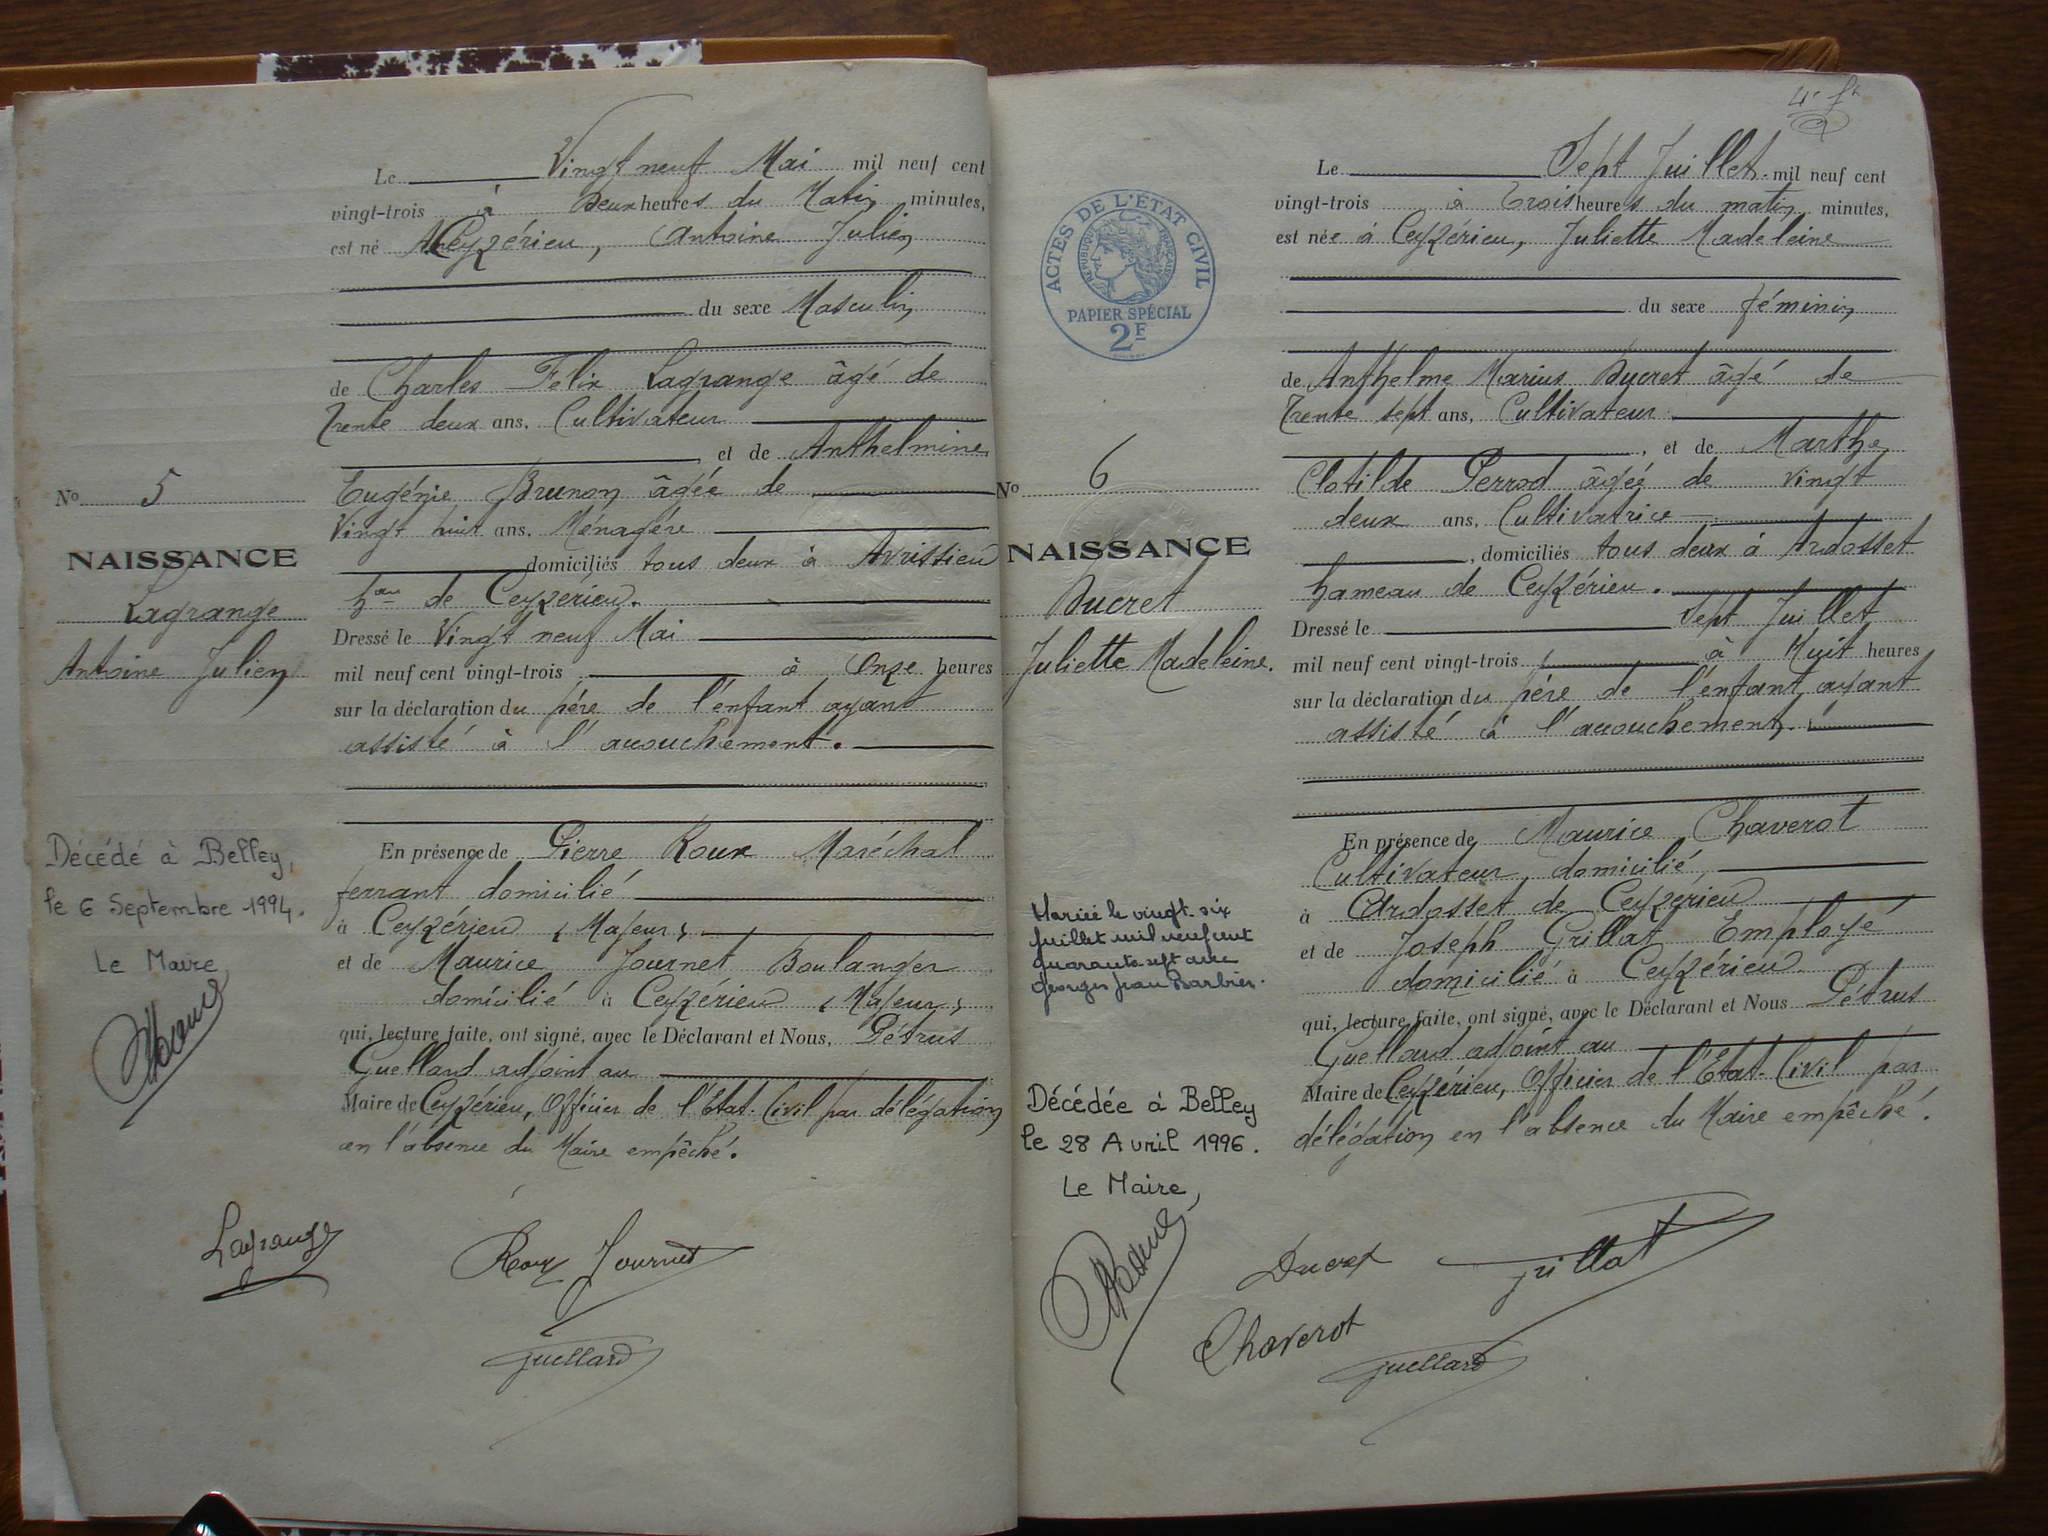 Le Vingt neuf Mai mil neuf cent
vingt-trois à Deux heures du Matin minutes,
est né à Ceyzérieu, Antoine Julien
du sexe Masculin
de Charles Felix Lagrange âgé de
Trente deux ans, Cultivateur
et de Anthelmine
Eugénie Brunon âgée de
Vingt huit ans, Ménagère
domiciliés tous deux à Avrissieu
hau de Ceyzérieu.
Dressé le Vingt neuf Mai
mil neuf cent vingt-trois à Onze heures
sur la déclaration du père de l'enfant ayant
assisté à l'accouchement.
En présence de Pierre Roux Maréchal
ferrant domicilié
à Ceyzérieu (Majeur)
et de Maurice Journet Boulanger
domicilié à Ceyzérieu (Majeur)
qui, lecture faite, ont signé, avec le Déclarant et Nous, Pétrus
Guelland adjoint au
Maire de Ceyzérieu, Officier de l'Etat-Civil par délégation
en l'absence du Maire empêché.
Lagrange
Roux Journet
Guelland
No 5
NAISSANCE
Lagrange
Antoine Julien
Décédé à Belley,
le 6 Septembre 1994.
Le Maire,
4e ft
Le Sept Juillet mil neuf cent
vingt-trois à Trois heures du matin minutes,
est née à Ceyzérieu, Juliette Madeleine
du sexe féminin
de Anthelme Marius Ducret âgé de
Trente sept ans, Cultivateur
, et de Marthe
Clotilde Perrod âgée de vingt
deux ans, Cultivatrice
, domiciliés tous deux à Ardosset
hameau de Ceyzérieu.
Dressé le Sept Juillet
mil neuf cent vingt-trois à Huit heures
sur la déclaration du père de l'enfant ayant
assisté à l'accouchement.
En présence de Maurice Chaverot
Cultivateur domicilié
à Ardosset de Ceyzérieu
et de Joseph Grillat Employé
domicilié à Ceyzérieu
qui, lecture faite, ont signé, avec le Déclarant et Nous Pétrus
Guelland adjoint au
Maire de Ceyzérieu, Officier de l'Etat-Civil par
délégation en l'absence du Maire empêché.
Ducret Grillat
Chaverot
Guelland
ACTES DE L'ÉTAT CIVIL
RÉPUBLIQUE FRANÇAISE
PAPIER SPÉCIAL
2F
No 6
NAISSANCE
Ducret
Juliette Madeleine.
Mariée le vingt-six
juillet mil neuf cent
quarante sept avec
Georges Jean Barbier.
Décédée à Belley
le 28 Avril 1996.
Le Maire,